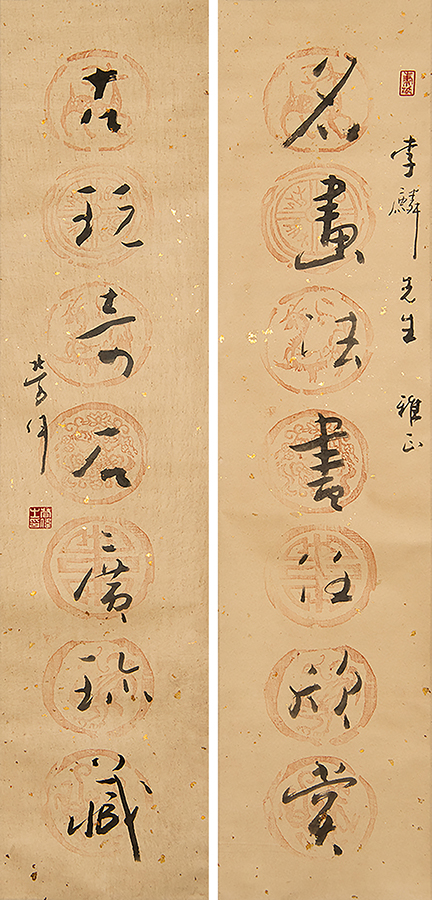 李麟先生 雅正
名畫法書任欣賞
古玩奇石廣珍藏